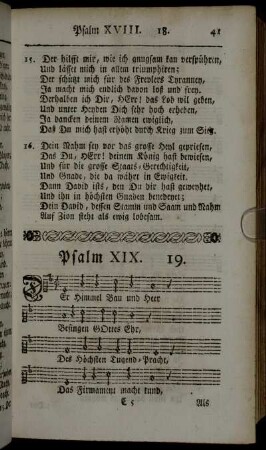 Psalm XVIII. 18. 41
15. Der hilfft mir, wie ich gnugsam kan verspühren,
Und lässet mich in allem triumphiren;
Der schützt mich für des Frevlers Tyranney,
Ja macht mich endlich davon loß und frey.
Derhalben ich Dir, HErr! das Lob wil geben,
Und unter Heyden Dich sehr hoch erheben,
Ja dancken deinem Namen ewiglich,
Daß Du mich hast erhöht durch Krieg zum Sieg.
16. Dein Nahm sey vor das grosse Heyl gepriesen,
Das Du, HErr! deinem König hast bewiesen,
Und für die grosse Gerechtigkeit,
Und Gnade, die da währet in Ewigkeit.
Dann David ists, den Du dir hast geweyhet,
Und ihn in höchsten Gnaden benedeyet;
Dein David, dessen Stamm und Saam und Nahm
Auf Zion steht als ewig lobesam.
Psalm XIX. 19.
DEr Himmel Bau und Heer
Besingen GOttes Ehr,
Des Höchsten Tugend-Pracht,
Das Firmament macht kund,
E 5 Als